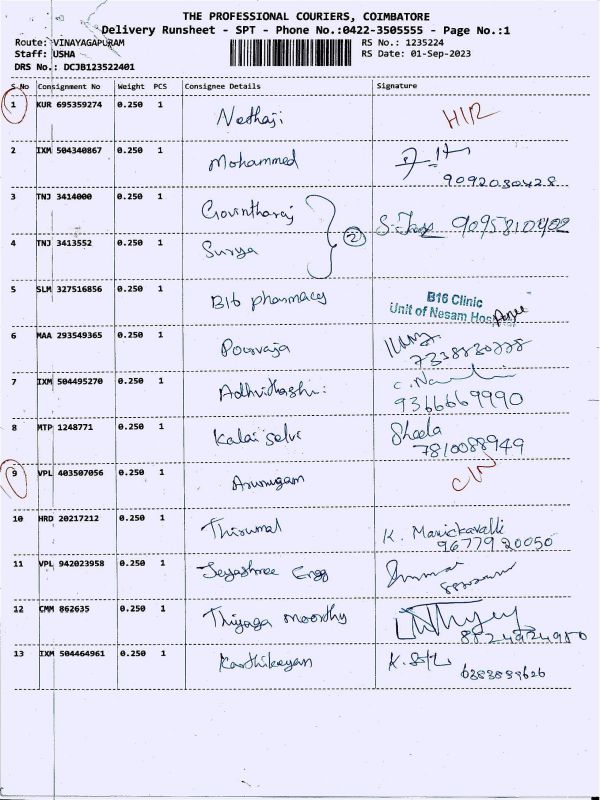 THE PROFESSIONAL COURIERS, COIMBATORE
Delivery Runsheet - SPT - Phone No.:0422-3505555 - Page No.:1
Route: VINAYAGAPURAM RS No.: 1235224
Staff: USHA RS Date: 01-Sep-2023
DRS No.: DCJB123522401
S No Consignment No Weight PCS Consignee Details Signature
1 KUR 695359274 0.250 1 Nethaji H/R
2 IXM 504340867 0.250 1 Mohammed
9092030428
3 TNJ 3414000 0.250 1 Govintharaj
② 9095810902
4 TNJ 3413552 0.250 1 Surya
5 SLM 327516856 0.250 1 B16 pharmacy B16 Clinic
Unit of Nesam Hospital
6 MAA 293549365 0.250 1 Poovaja
7338830778
7 IXM 504495270 0.250 1
9366669990
8 MTP 1248771 0.250 1 Kalai selvi Sheela
7810088949
9 VPL 403507056 0.250 1 Arumugam C/N
10 HRD 20217212 0.250 1 Thirumal K. Manickavalli
9677920050
11 VPL 942023958 0.250 1 Jeyashree Engg
12 CMM 862635 0.250 1 Thiyaga moorthy
8824924980
13 IXM 504464961 0.250 1 Karthikeyan
6383899626